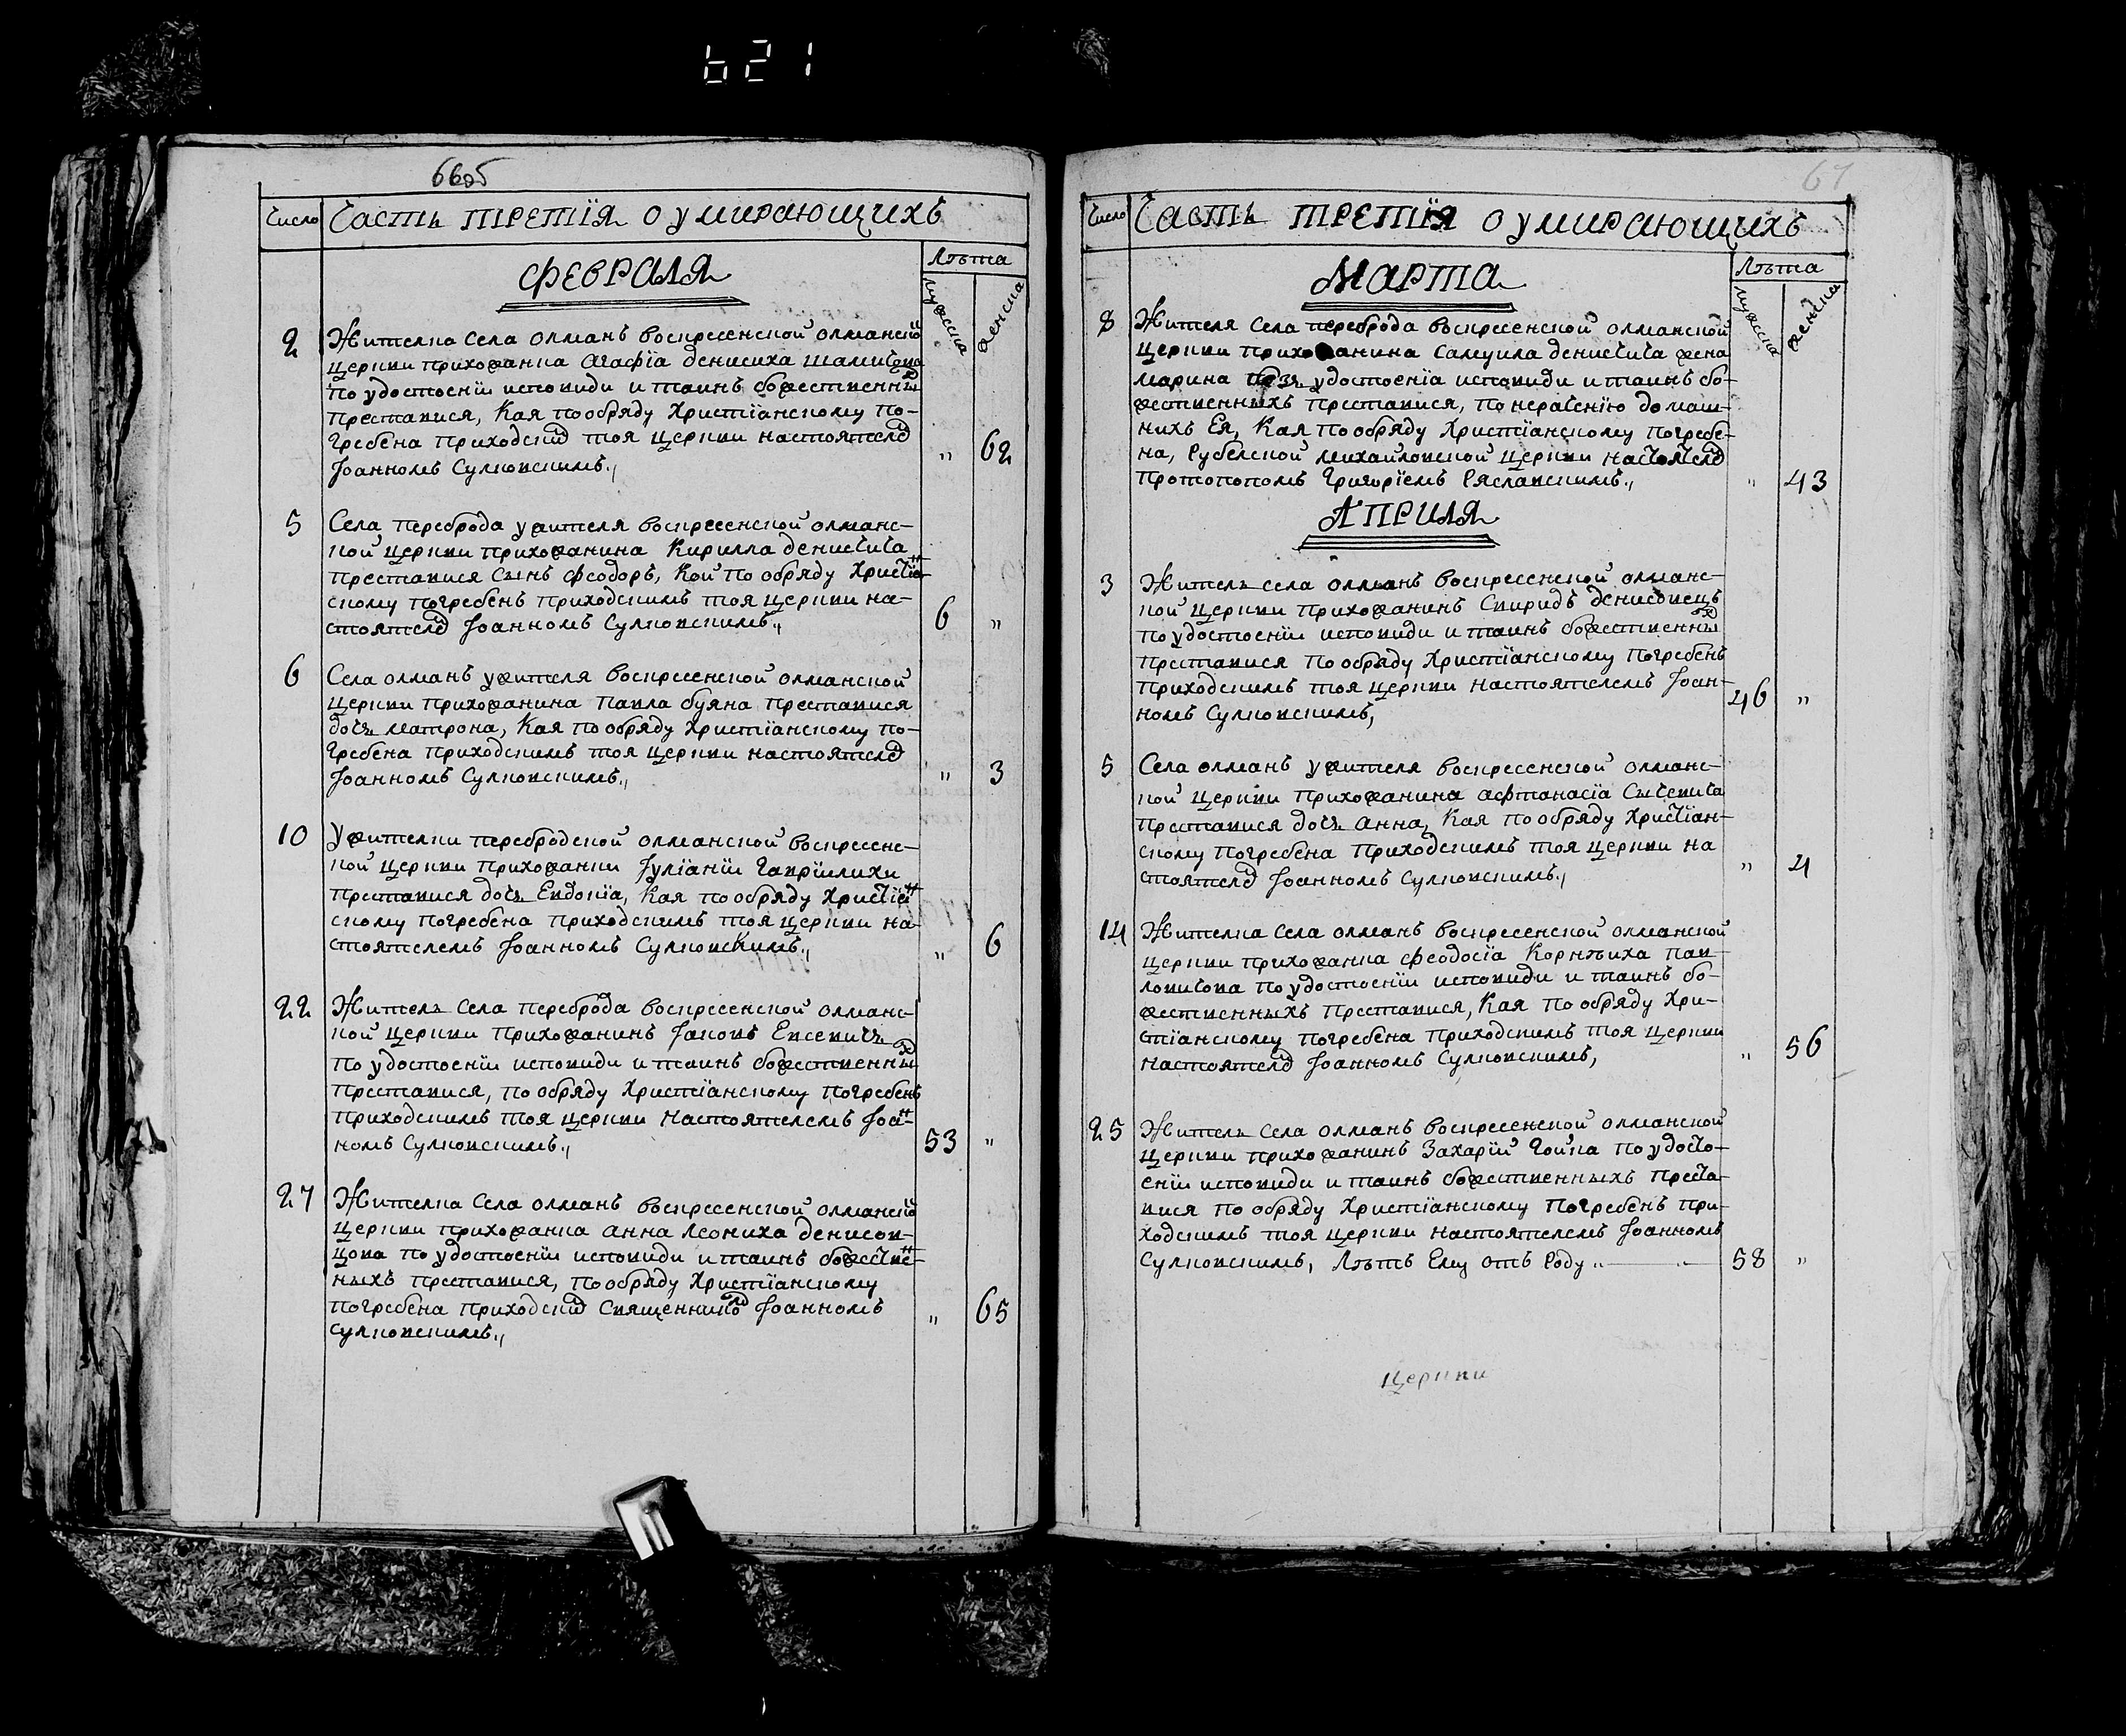 621
66об
Число Часть третїя о умирающихъ
Лѣта
мужеска женска
Февраля
2 Жителка села олманъ воскресенской олманской
церкви прихожанка Агафїа денисиха
по удостоенїи исповиди и таинъ божественныхъ
преставися, Кая по обряду Христїанскому по-
гребена приходским тоя церкви настоятелем
Іоанномъ Сулковскимъ., „ 62
5 Села переброда ужителя воскресенской олманс-
кой церкви прихожанина Кирилла денисича
преставися сынъ Феодоръ, Кой по обряду Христїан-
скому погребенъ приходскимъ тоя церкви на-
стоятелем Іоанномъ Сулковскимъ., 6 „
6 Села олманъ ужителя воскресенской олманской
церкви прихожанина Павла буяна преставися
дочь матрона, Кая по обряду Христїанскому по-
гребена приходскимъ тоя церкви настоятелем
Іоанномъ Сулковскимъ., „ 3
10 Ужителки перебродской олманской воскресенс-
кой церкви прихожанки Іулїанїи Гаврїилихи
преставися дочь Евдокїа, Кая по обряду Христїан-
скому погребена приходскимъ тоя церкви на-
стоятелемъ Іоанномъ Сулковскимъ., „ 6
22 Житель села переброда воскресенской олманс-
кой церкви прихожанинъ Іаковъ Евсевичь
по удостоенїи исповиди и таинъ божественных
преставися, по обряду Христїанскому погребенъ
приходскимъ тоя церкви настоятелемъ Іоан-
номъ Сулковскимъ., 53 „
27 Жителка села олманъ воскресенской олманской
церкви прихожанка анна леониха денисов-
цова по удостоенїи исповиди и таинъ божествен-
ныхъ преставися, по обряду Христїанскому
погребена приходским священником Іоанномъ
сулковскимъ., „ 65
67
Число Часть третїя о умирающихъ
Лѣта
мужеска женска
Марта
8 Жителя села переброда воскресенской олманской
церкви прихожанина самуила денисича жена
марина без удостоенїа исповиди и таинъ бо-
жественныхъ преставися, по нерасенїю домаш-
нихъ Ея, Кая по обряду Христїанскому погребе-
на, Рубелской михайловской церкви настоятелем
протопопомъ Григорїемъ „ 43
Априля
3 Житель села олманъ воскресенской олманс-
кой церкви прихожанинъ Спиридъ денисовецъ
по удостоенїи исповиди и таинъ божественных
преставися по обряду Христїанскому погребенъ
приходскимъ тоя церкви настоятелемъ Іоан-
номъ Сулковскимъ, 46 „
5 Села олманъ ужителя воскресенской олманс-
кой церкви прихожанина афтанасїа
преставися дочь Анна, Кая по обряду Христїан-
скому погребена приходскимъ тоя церкви на
стоятелем Іоанномъ Сулковскимъ., „ 4
14 Жителка села олманъ воскресенской олманской
церкви прихожанка феодосїа Корнѣиха пав-
ловичова по удостоенїи исповиди и таинъ бо-
жественныхъ преставися, Кая по обряду Хри-
стїанскому погребена приходскимъ тоя церкви
настоятелем Іоанномъ Сулковскимъ, „ 56
25 Житель села олманъ воскресенской олманской
церкви прихожанинъ Захарїй Гойпа по удосто-
енїи исповиди и таинъ божественныхъ преста-
вися по обряду Христїанскому погребенъ при-
ходскимъ тоя церкви настоятелемъ Іоанномъ
Сулковскимъ, Лѣтъ Ему отъ Роду „ — „ 58 „
церкви